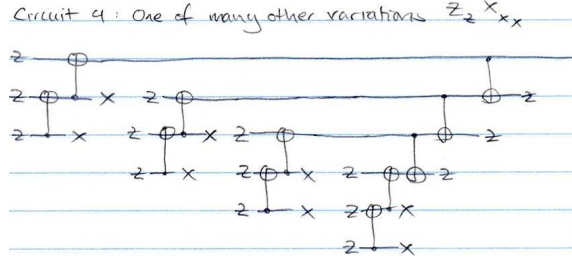 Circuit 4: One of many other variations Z z X x x
Z
Z X Z Z
Z X Z X Z Z
Z X Z X Z Z
Z X Z X
Z X